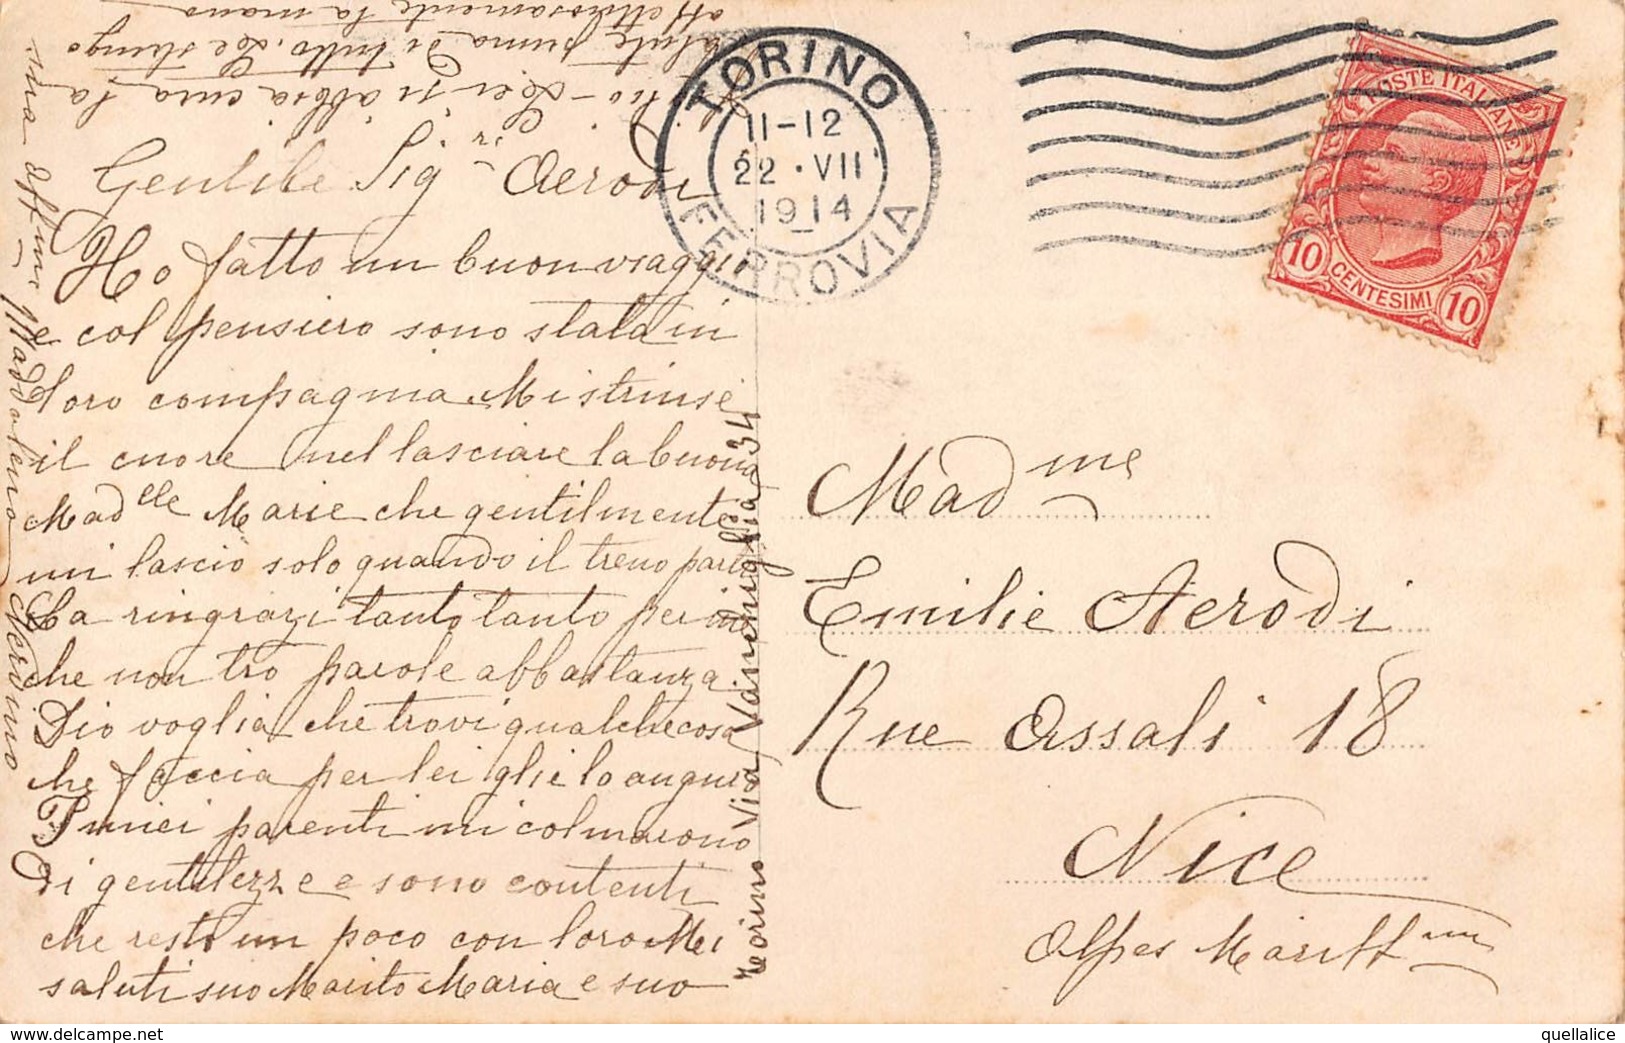 Gentile Sig.ra Aerodi
Ho fatto un buon viaggio
e col pensiero sono stata in
loro compagnia. Mi strinse
il cuore nel lasciare la buona
Madelle Marie che gentilmente
mi lascio solo quando il treno parti
La ringrazi tanto tanto per me
che non tro parole abbastanza.
Dio voglia che trovi qualche cosa
che faccia per lei glie lo auguro
I miei parenti mi colmarono
di gentilezze e sono contenti
che resti un poco con loro Mei
saluti suo Marito Maria e suo
figlio - Lei si abbia cura la
salute prima di tutto. Le stringo
affettuosamente la mano
sua aff.ma Maddalena Nerdino
Torino Via Vanchiglia 34
TORINO
11-12
22 · VII
1914
FERROVIA
POSTE ITALIANE
10 CENTESIMI 10
Madme
Emilie Aerodi
Rue Assali 18
Nice
Alpes Maritt
quellalice